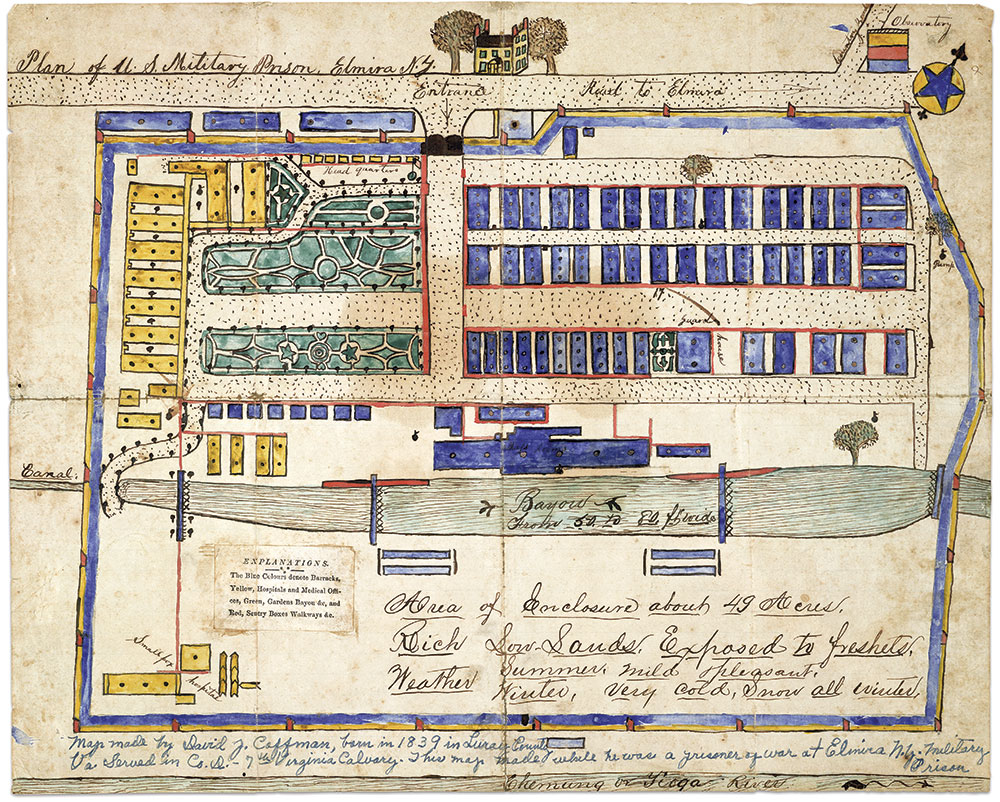 Observatory
Plan of U. S. Military Prison, Elmira N.Y.
Entrance
Road to Elmira
Head quarters
Pump
17
Guard
house
Canal.
Bayou
From 50 to 80 ft wide
EXPLANATIONS.
The Blue Colours denote Barracks,
Yellow, Hospitals and Medical Offi-
ces, Green, Gardens Bayou &c, and
Red, Sentry Boxes Walkways &c.
Area of Enclosure about 49 Acres,
Rich Low-Lands, Exposed to freshets,
Weather Summer, mild & pleasant,
Winter, Very cold, Snow all winter,
Small pox
hospital
Map made by David J. Coffman, born in 1839 in Luray County
Va. Served in Co. D. - 7th Virginia Calvary. This map made while he was a prisoner of war at Elmira N.Y. Military
Prison
Chemung or Tioga River